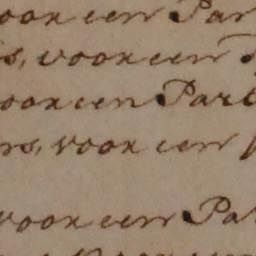 voor een Par
s, voor een
voor een Part
rs, voor een p
voor een Pa